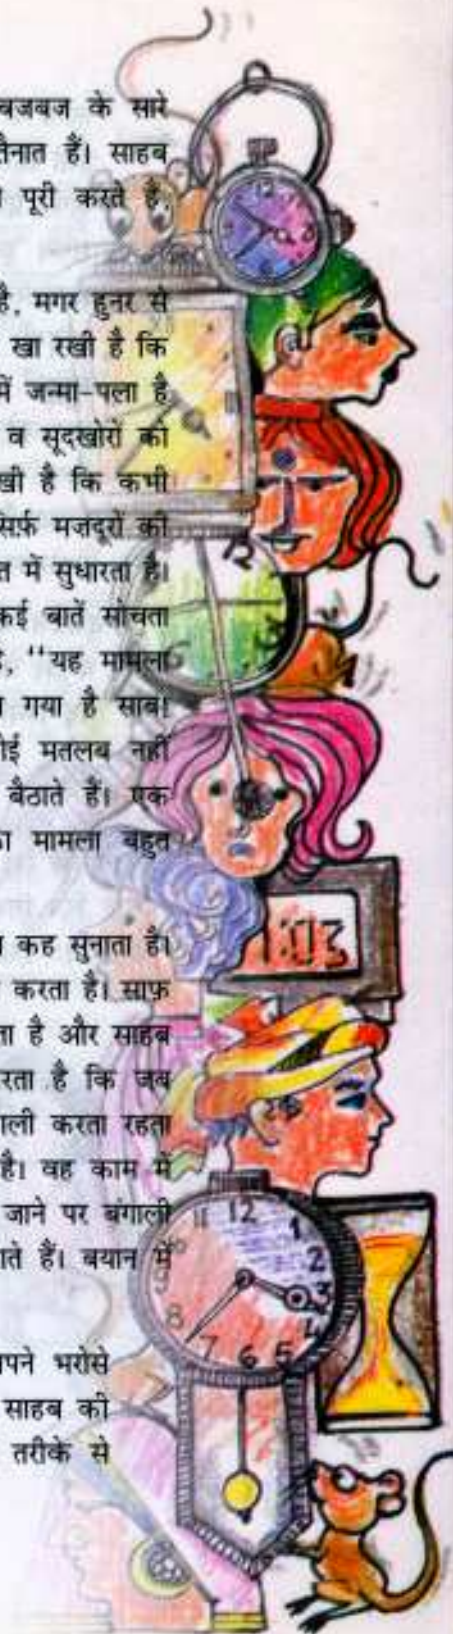 बजबज के सारे
तैनात हैं। साहब
पूरी करते हैं,
है, मगर हुनर से
खा रखी है कि
में जन्मा-पला है
व सूदखोरों को
रखी है कि कभी
सिर्फ़ मज़दूरों की
में सुधारता है।
कई बातें सोचता
है, "यह मामला
गया है साब!
कोई मतलब नहीं
बैठाते हैं। एक
का मामला बहुत
कह सुनाता है।
करता है। साफ़
है और साहब
करता है कि जब
करता रहता
है। वह काम में
जाने पर बंगाली
जाते हैं। बयान में
अपने भरोसे
साहब की
तरीके से
12
1:03
12
1
2
3
4
5
6
7
8
9
11